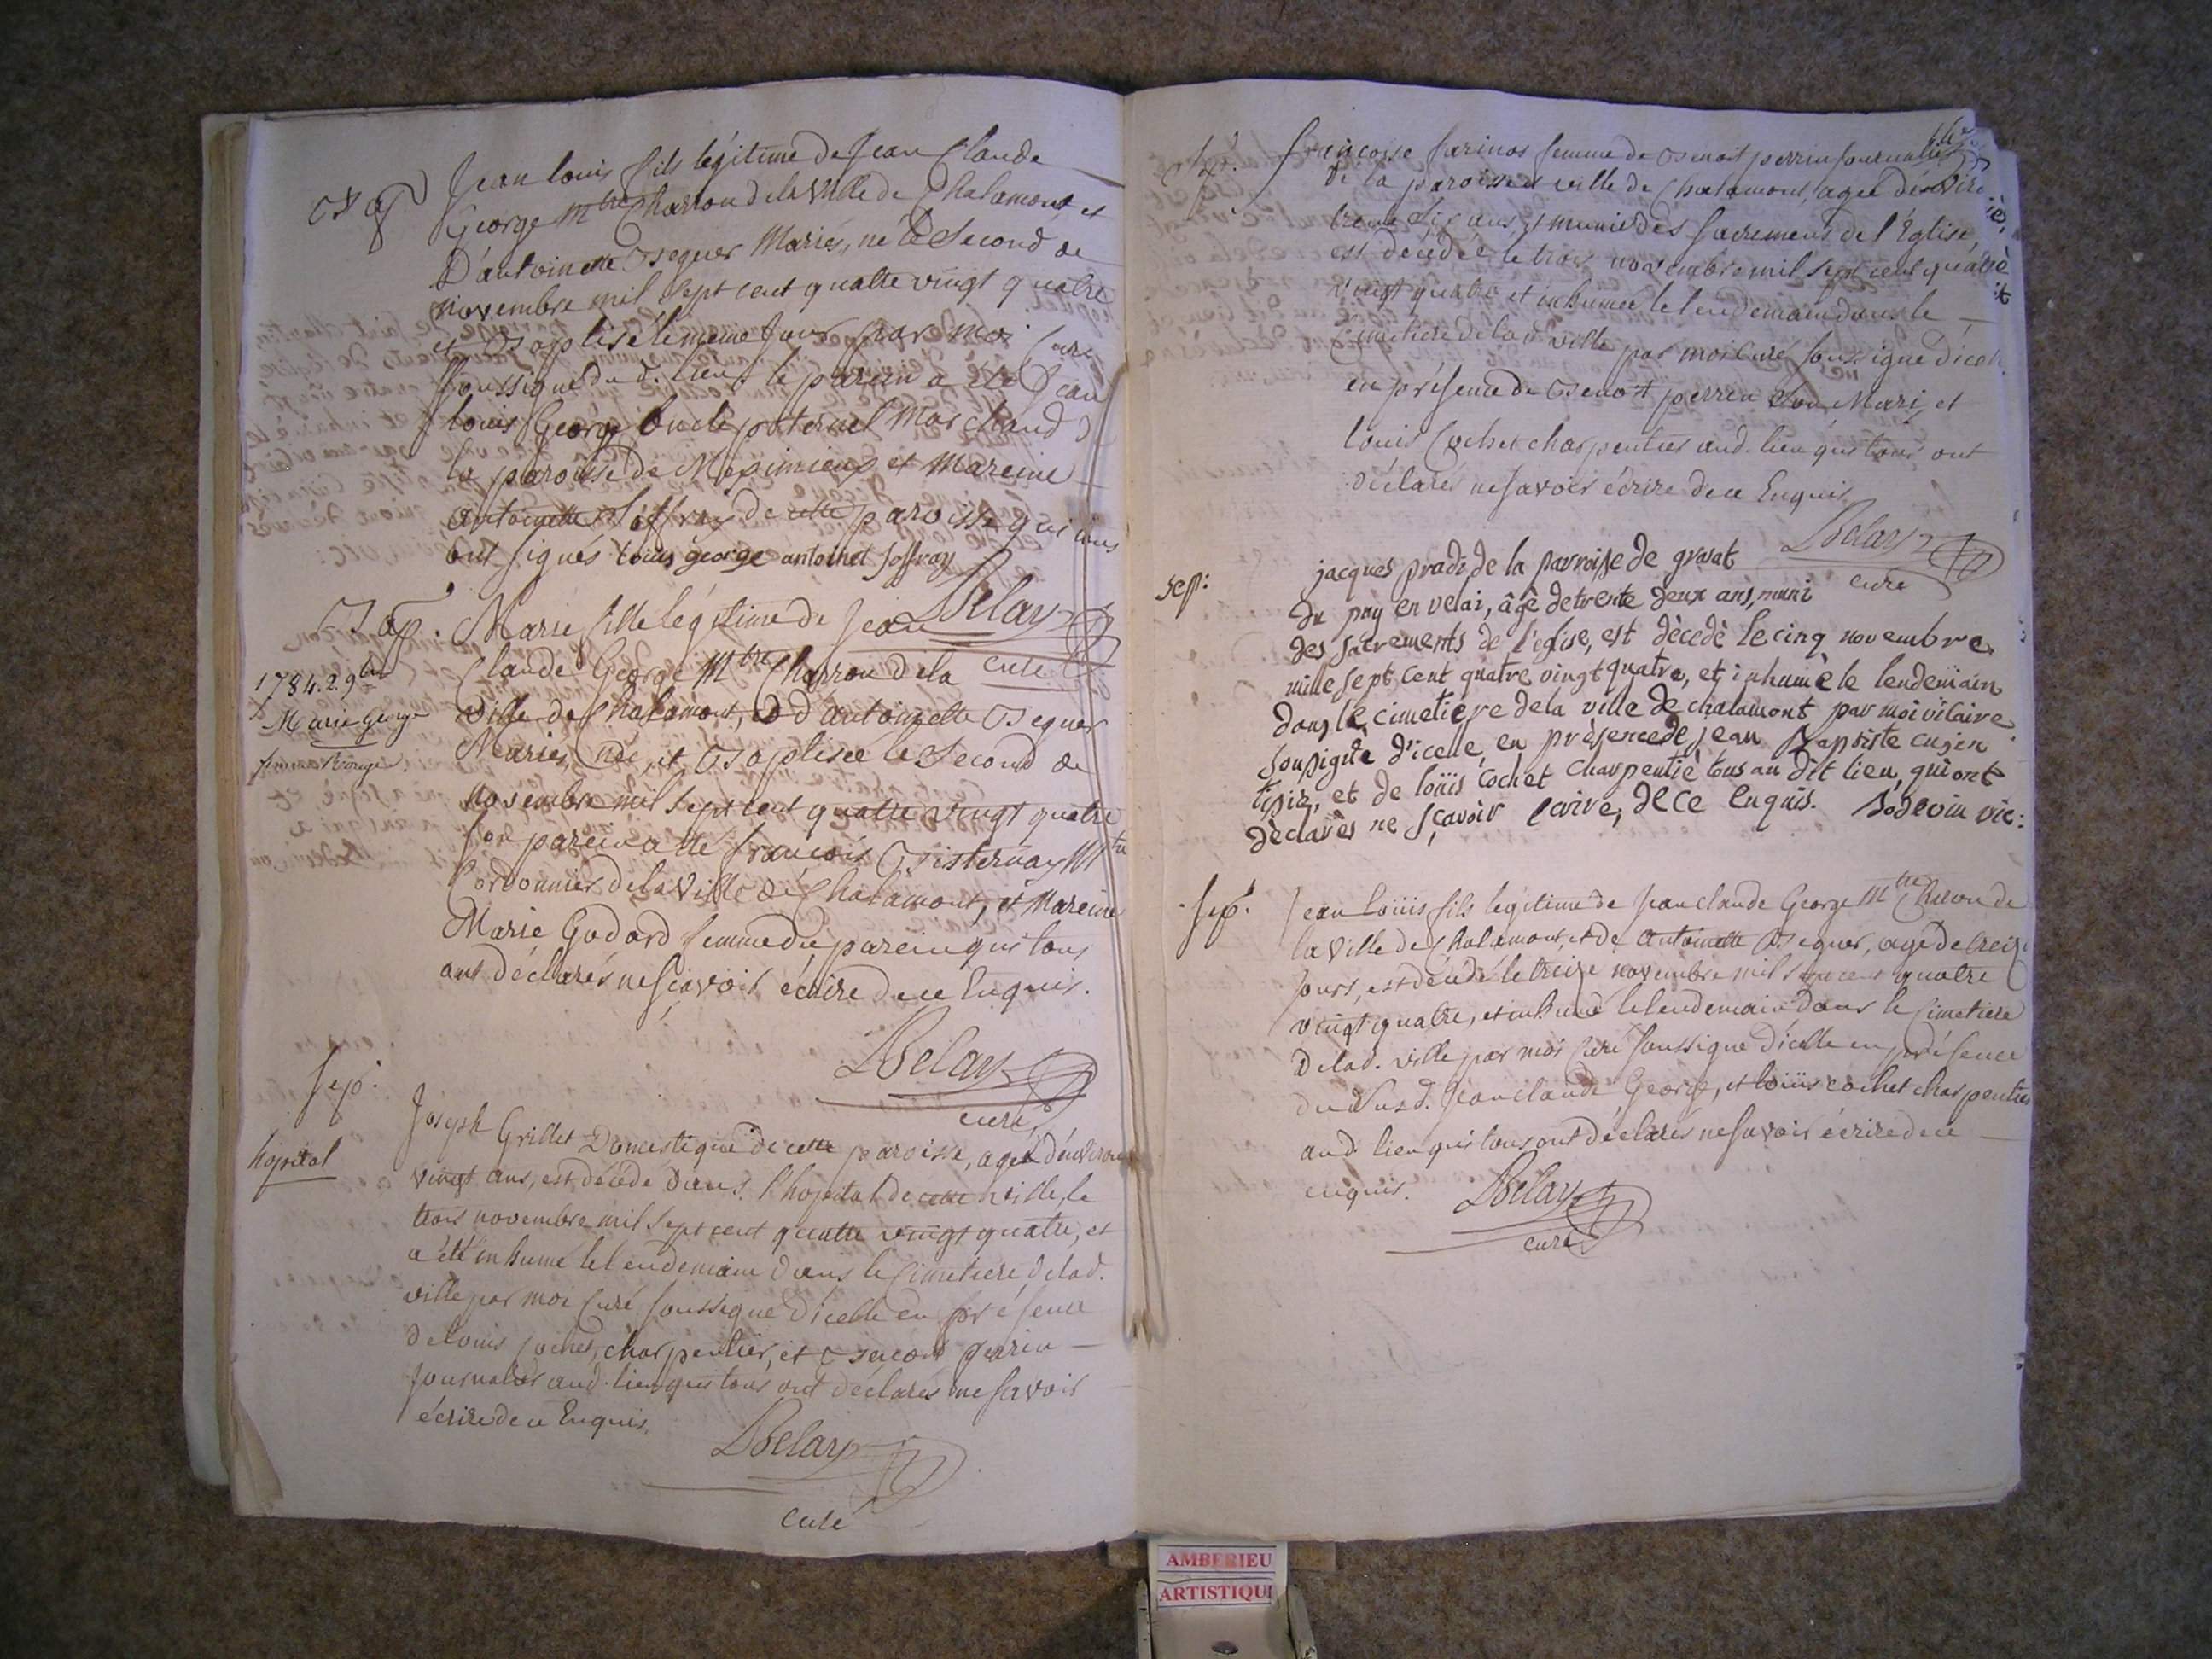 Bap
Jean louis fils légitime de Jean Claude
George Mtre Charron de la ville de Chalamont, et
D'antoinette Beguer Mariés, né le Second de
novembre mil sept cent quatre vingt quatre
et Baptisé le meme Jour par moi Curé
soussigné du d. lieu. le parein a été Jean
louis George oncle paternel Marchand d
la paroisse de Meximieux et Mareine
antoinette Soffray de cette paroisse qui tous
ont signés louis george antoinet soffray
DBelay
curé
Bap.
1784. 2. 9bre
Marie George
Marie fille légitime de Jean
Claude George Mtre Charron de la
ville de Chalamont, et d'antoinette Beguer
Mariés, née et Baptisée le Second de
novembre mil sept cent quatre vingt quatre
son parein a été françois Bisternay Mtre
Cordonnier de la ville de Chalamont, et Mareine
Marie Godard femme du parein qui tous
ont déclarés ne sçavoir écrire de ce Enquis.
DBelay
curé
sep.
hopital
Joseph Grillet Domestique de cette paroisse, agé d'environ
vingt ans, est décédé dans l'hopital de cette ville, le
trois novembre mil sept cent quatre vingt quatre, et
a été inhumé le lendemain dans le Cimetiere de la d.
ville par moi Curé soussigné d'icelle en présence
de louis cochet, charpentier, et Benoit perrin
Journalier aud. lieu qui tous ont déclarés ne savoir
écrire de ce Enquis.
DBelay
curé
sep.
françoise farinos femme de Benoit perrin Journalier
de la paroisse et ville de Chalamont, agée d'environ
trente six ans, et munie des sacremens de l'Eglise,
est décédée le trois novembre mil sept cent quatre
vingt quatre et inhumée le lendemain dans le
Cimetiere de la d. ville par moi Curé soussigné d'icelle
en présence de Benoit perrin son Mari, et
louis Cochet charpentier aud. lieu qui tous ont
déclarés ne savoir écrire de ce Enquis
DBelay
curé
sep:
jacques pradi de la parroisse de grasat
du puy en velai, âgè de trente deux ans, muni
des sacrements de l'eglise, est dècedè le cinq novembre
mille sept cent quatre vingt quatre, et inhumè le lendemain
dans le cimetière de la ville de chalamont par moi vicaire
soussignè d'icelle, en prèsence de jean Baptiste cusin
tissier, et de loüis Cochet charpentiè tous au dit lieu, qui ont
dèclarès ne sçavoir ècrire, de ce enquis. Bodevin vic:
sep.
Jean loüis fils légitime de Jean claude George Mtre Charon de
la ville de Chalamont, et de antoinette Beguer, agé de treize
jours, est décédé le treize novembre mil sept cent quatre
vingt quatre, et inhumé le lendemain dans le Cimetiere
de la d. ville par moi Curé soussigné d'icelle en présence
du susd. Jean claude George, et loüis cochet charpentier
aud. lieu qui tous ont déclarés ne savoir écrire de ce
enquis.
DBelay
curé
AMBERIEU
ARTISTIQU